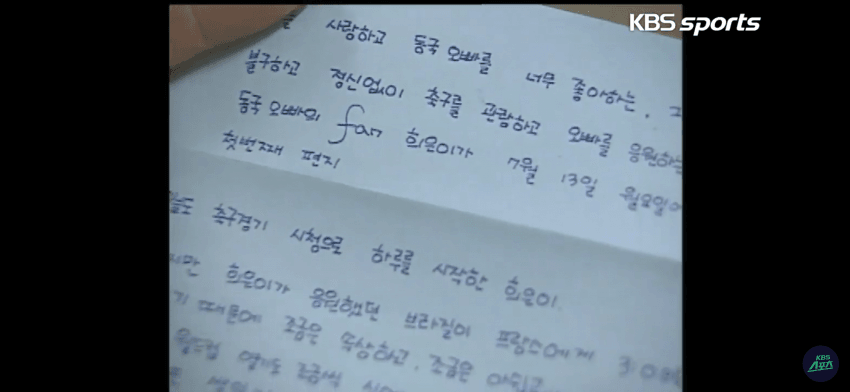 KBS sports
를 사랑하고 동국 오빠를 너무 좋아하는.
불구하고 정신없이 축구를 관람하고 오빠를 응원하는
동국 오빠의 fan 희은이가 7월 13일 월요일에
첫번째 편지!
축구경기 시청으로 하루를 시작한 희은이.
희은이가 응원했던 브라질이 프랑스에게 3:0
기 때문에 조금은 속상하고. 조금은
월드컵 열기도 조금씩
KBS
스포츠